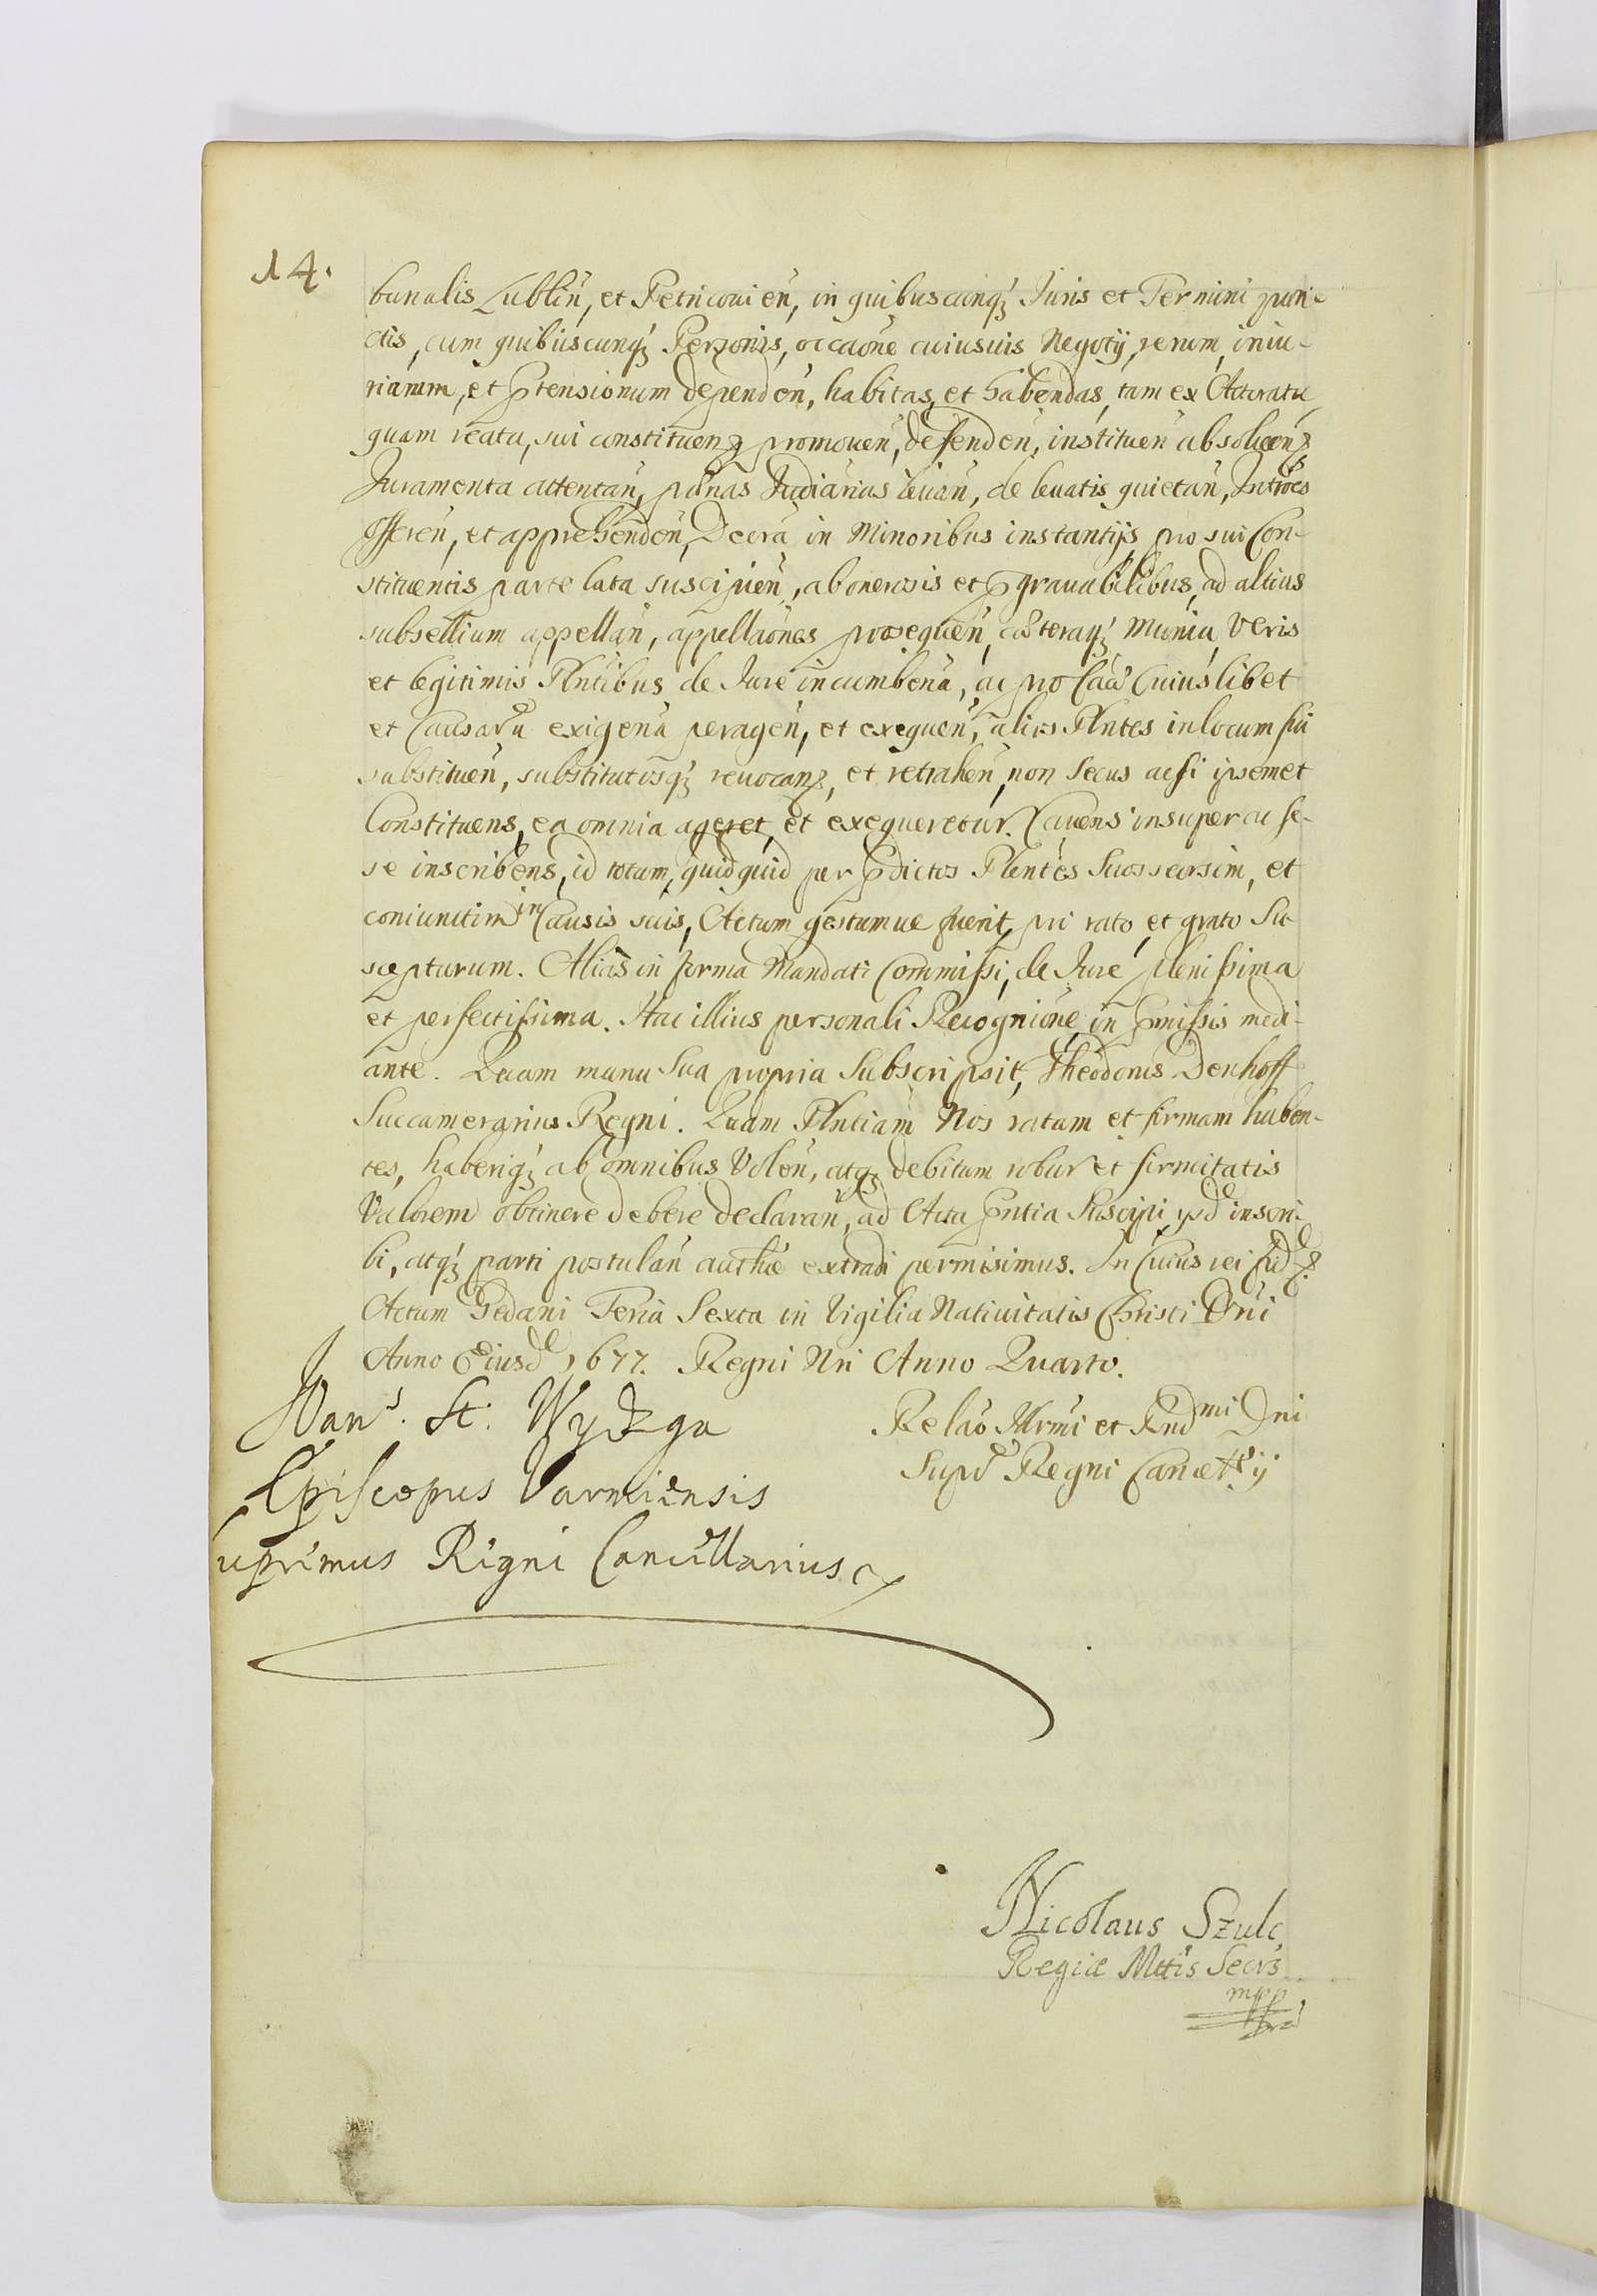 14.
bunalis Lublin̄, et Petricouien̄, in quibuscunqꝫ Iuris et Termini pun-
ctis, cum quibuscunqꝫ Personis, occaōne cuiusuis Negotÿ, rerum, iniu-
riarum, et Ptensionum dependen̄, habitas, et habendas, tam ex Actoratu
quam reatu, sui constituenꝫ promouen̄, defenden̄, instituen̄ absoluenꝫ
Juramenta attentan̄, pœnas Judiarias leuan̄, de leuatis quietan̄, Introes
Offeren̄, et apprehenden̄, Decra in Minoribus instantijs pro sui Con-
stituentis parte lata suscipien̄, ab onerosis et Pgrauabilibus, ad altius
subsellium appellan̄, appellaōnes prosequen̄, cæteraqꝫ Munia, Veris
et legitimis Plntibus de Jure incumbena, ac pro Caa Cuiuslibet
et Causaru exigena peragen̄, et exequen̄, alios Plntes in locum sui
substituen̄, substitutosqꝫ reuocanꝫ, et retrahen̄, non Secus acsi ipsemet
Constituens, ea omnia ageret, et exequeretur. Cauens insuper ac se-
se inscribens, id totum, quidquid per Pdictos Plentes Suos seorsim, et
coniunctim in Causis suis, Actum gestumue fuerit, pri rato, et grato Su-
scepturum. Alias in forma Mandati Commissi, de Jure plenissima
et perfectissima. Hac illius personali Recogniōne, in Pmissis medi-
ante. Quam manu Sua propria Subscripsit, Theodorus Denhoff
Succamerarius Regni. Quam Plntiam Nos ratam et firmam haben-
tes, haberiqꝫ ab omnibus Volen̄, atqꝫ debitum robur et firmitatis
Valorem obtinere debere declaran̄, ad Acta Pntia Suscipi, ysd inscri-
bi, atqꝫ parti postulan̄ authæ extradi permisimus. In Cuius rei fid ꝫ.
Actum Gedani Feria Sexta in Vigilia Natiuitatis Christi Dn̄i
Anno Eiusd 1677. Regni Nri Anno Quarto.
Joan̄s. St. Wydzga
Episcopus Varmiensis
Supremus Regni Cancellarius
Relaō Illrmi et Rndmi Dni
Supr Regni Cancellÿ
Nicolaus Szulc
Regiæ Mttis Secrs
mpp